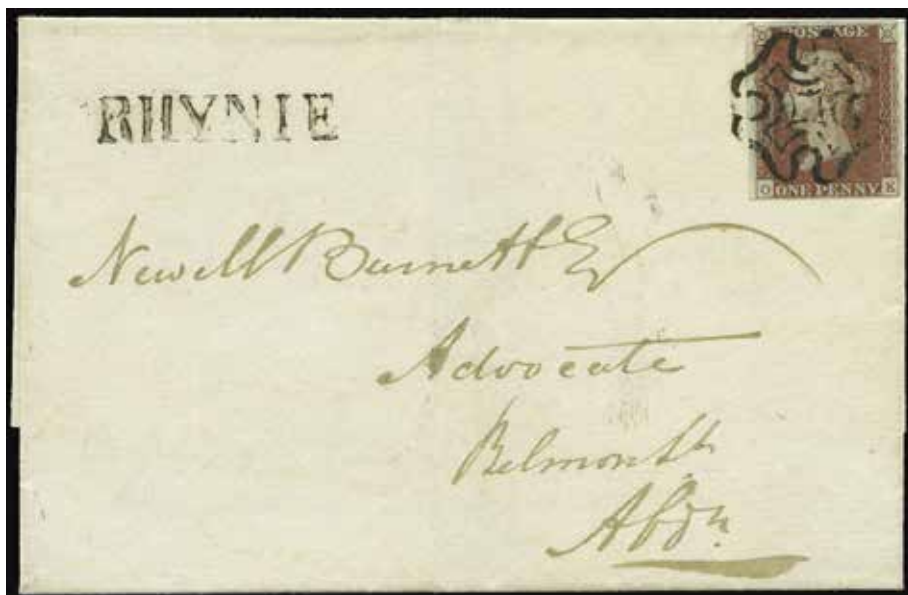 RHYNIE
POSTAGE
O ONE PENNY E
Newell Burnett Esq
Advocate
Belmont St
Abdn